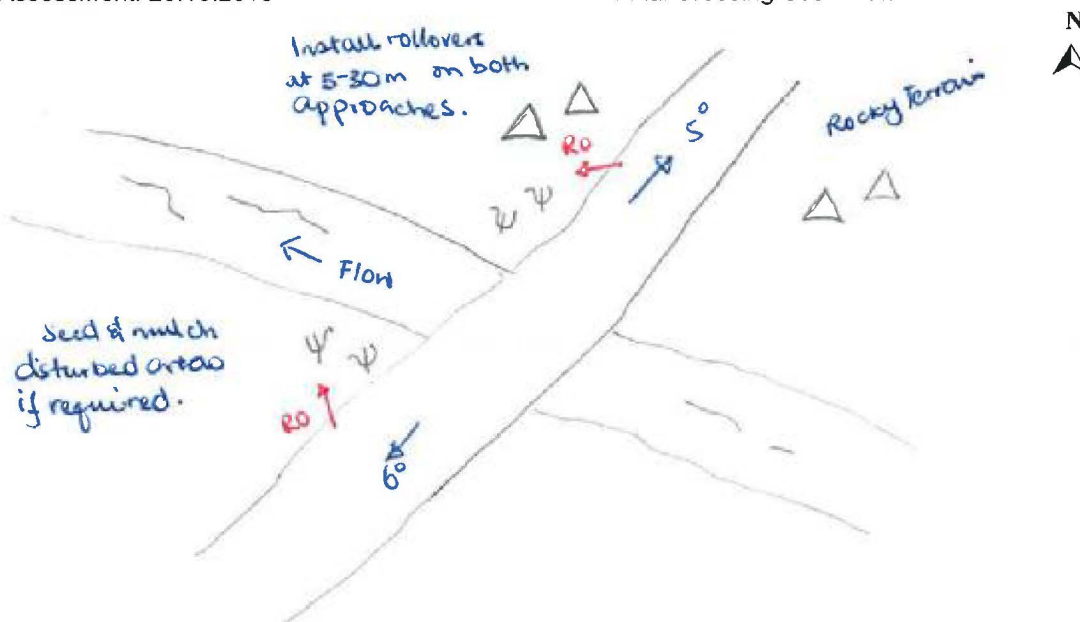 N
Install rollovers
at 5-30m on both
approaches.
RO
5°
Rocky Terrain
Flow
Seed & mulch
disturbed areas
if required.
RO
6°